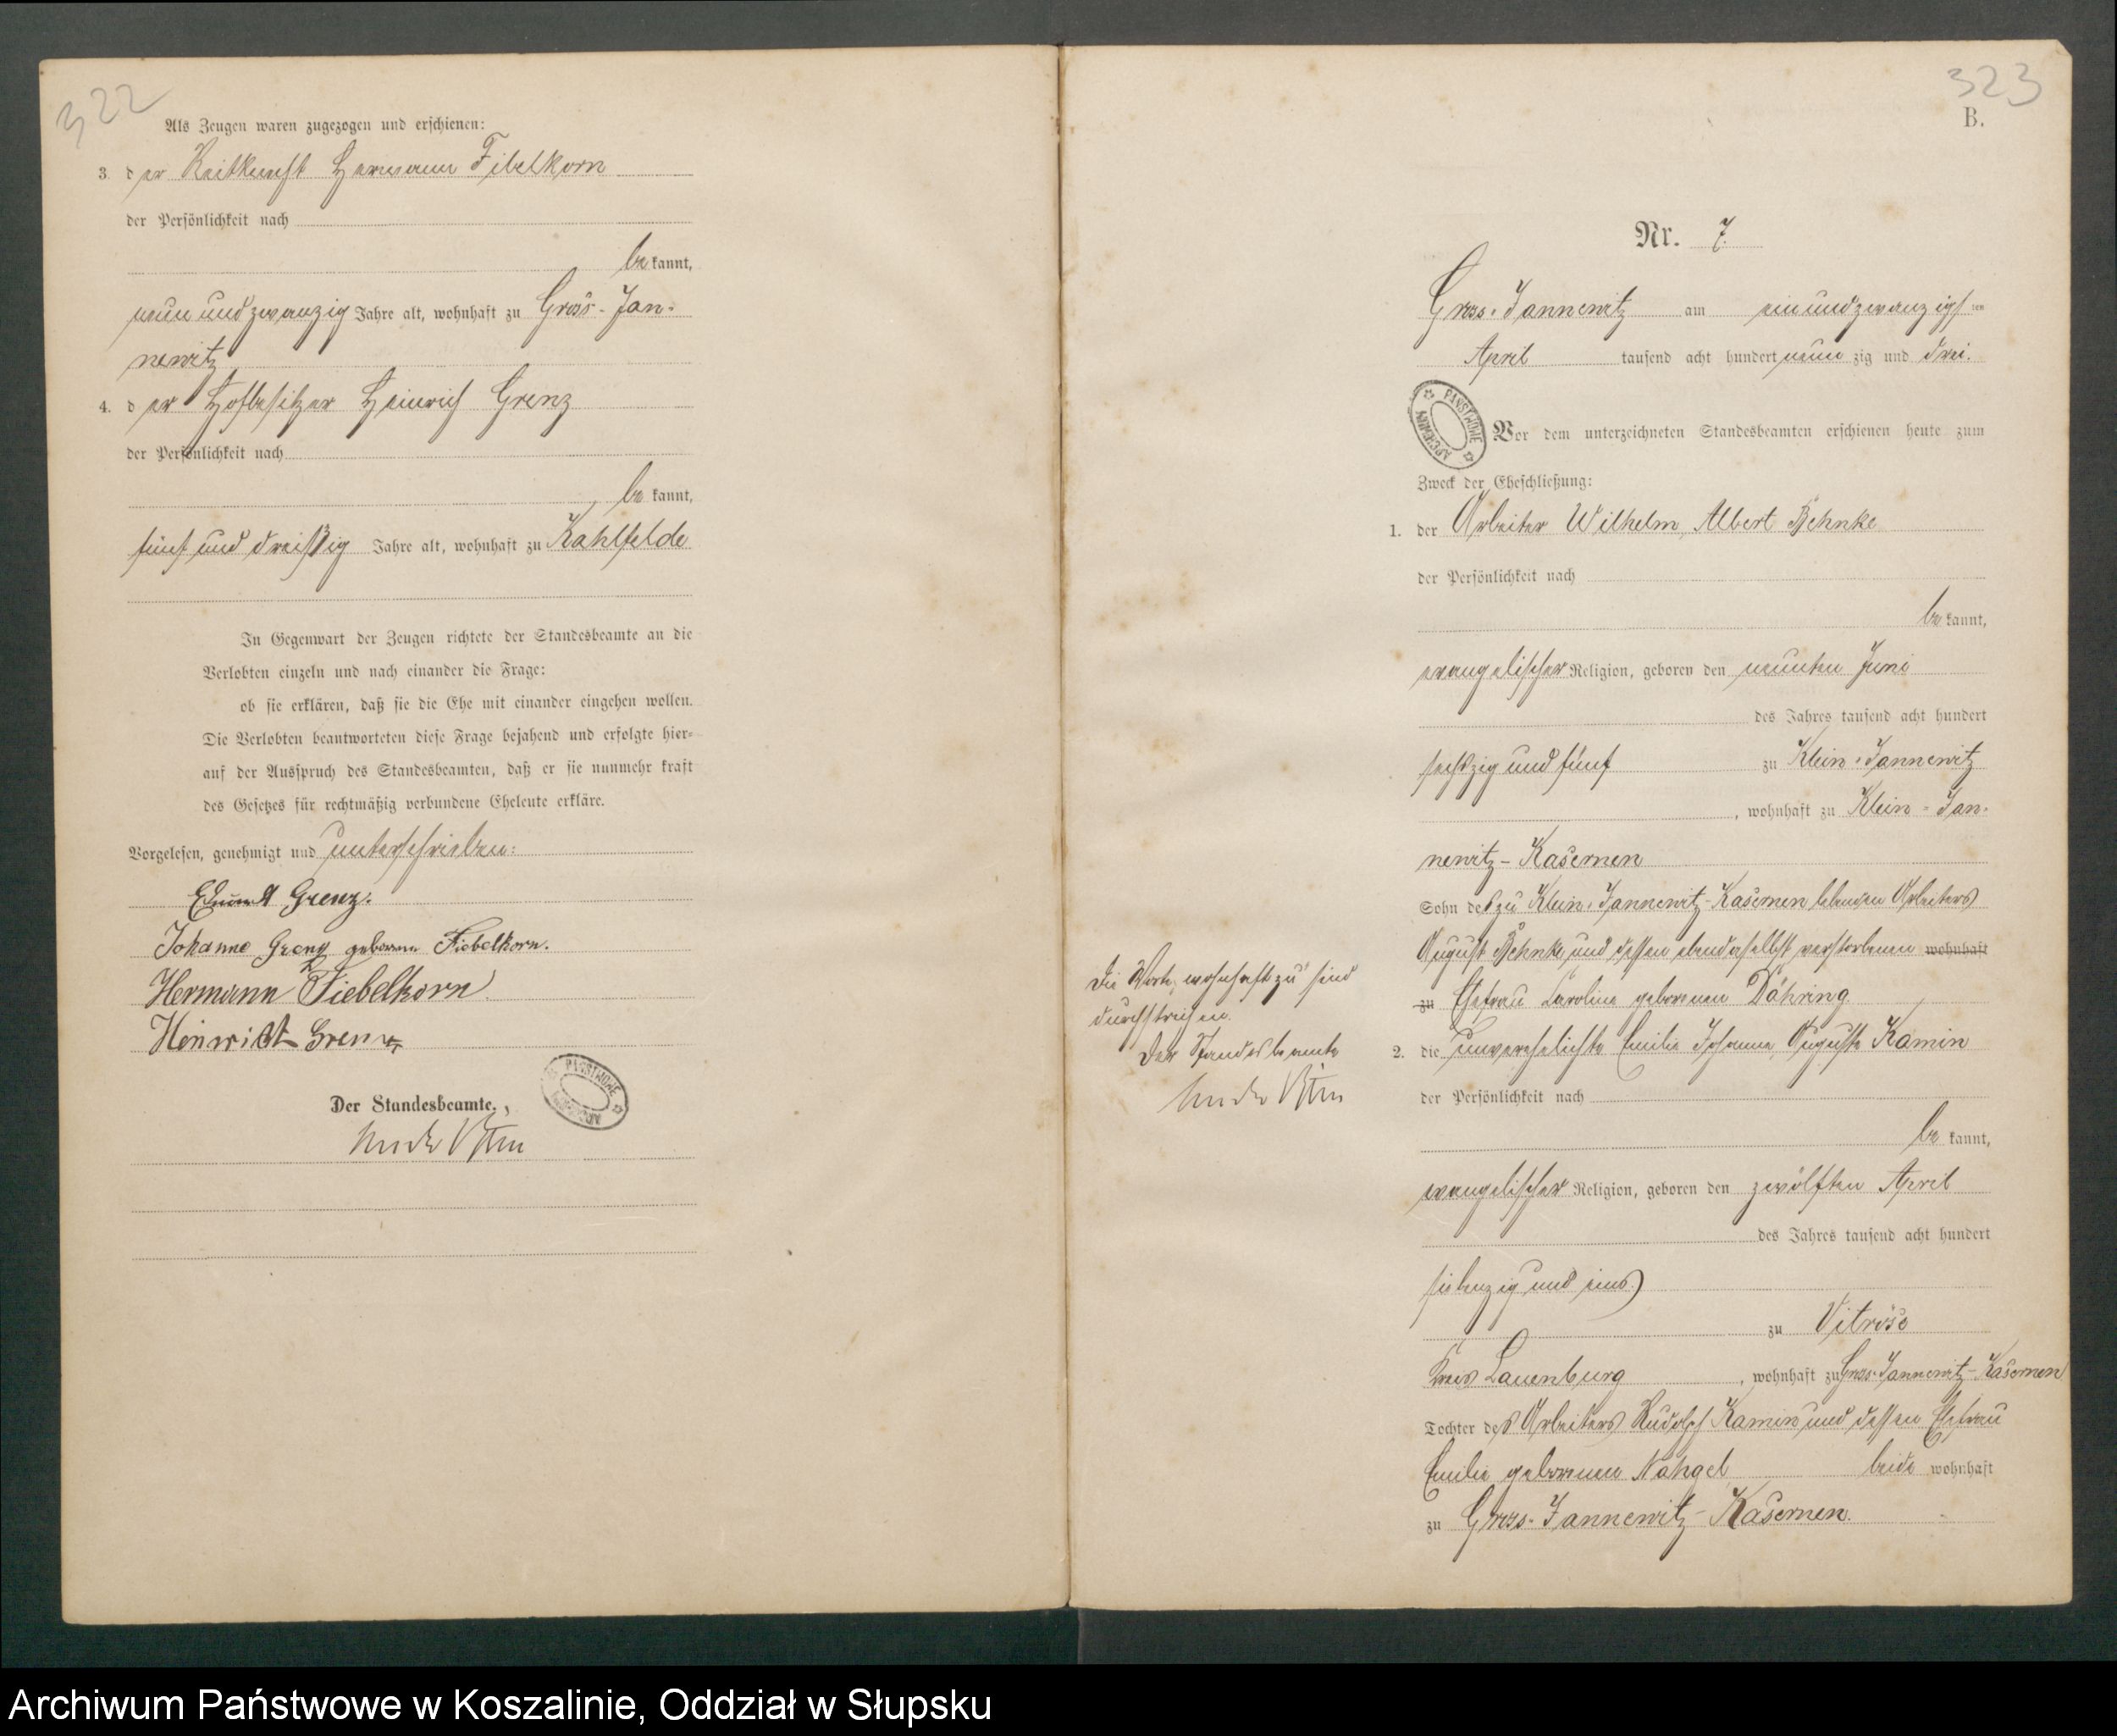 322
Als Zeugen waren zugezogen und erschienen:
3. der Reitknecht Hermann Fibelkorn
der Persönlichkeit nach
bekannt,
neun und zwanzig Jahre alt, wohnhaft zu Gross-Jan-
newitz
4. der Hofbesitzer Heinrich Grenz
der Persönlichkeit nach
bekannt,
fünf und dreißig Jahre alt, wohnhaft zu Kahlfelde
In Gegenwart der Zeugen richtete der Standesbeamte an die
Verlobten einzeln und nach einander die Frage:
ob sie erklären, daß sie die Ehe mit einander eingehen wollen.
Die Verlobten beantworteten diese Frage bejahend und erfolgte hier-
auf der Ausspruch des Standesbeamten, daß er sie nunmehr kraft
des Gesetzes für rechtmäßig verbundene Eheleute erkläre.
Vorgelesen, genehmigt und unterschrieben:
Eduard Grenz.
Johanne Grenz geborene Fiebelkorn.
Hermann Fiebelkorn
Heinricht Grenz
Der Standesbeamte.
PAŃSTWOWE
323
B.
Nr. 7.
Gross-Jannewitz am einundzwanzigsten
April tausend acht hundert neunzig und drei.
ARCHIWUM PAŃSTWOWE
Vor dem unterzeichneten Standesbeamten erschienen heute zum
Zweck der Eheschließung:
1. der Arbeiter Wilhelm, Albert Behnke
der Persönlichkeit nach
bekannt,
evangelischer Religion, geboren den neunten Juni
des Jahres tausend acht hundert
sechszig und fünf zu Klein-Jannewitz
, wohnhaft zu Klein-Jan-
newitz-Kasernen
Sohn des zu Klein-Jannewitz-Kasernen lebenden Arbeiters
August Behnke und dessen ebendaselbst verstorbenen wohnhaft
zu Ehefrau Caroline geborenen Döhring
Die Worte „wohnhaft zu“ sind
durchstrichen.
Der Standesbeamte
2. die unverehelichte Emilie Johanne Auguste Kamin
der Persönlichkeit nach
bekannt,
evangelischer Religion, geboren den zwölften April
des Jahres tausend acht hundert
siebenzig und eins
zu Vitröse
Kreis Lauenburg, wohnhaft zu Gross-Jannewitz-Kasernen
Tochter des Arbeiters Rudolph Kamin und dessen Ehefrau
Emilie geborenen Nahgel beide wohnhaft
zu Gross-Jannewitz-Kasernen.
Archiwum Państwowe w Koszalinie, Oddział w Słupsku